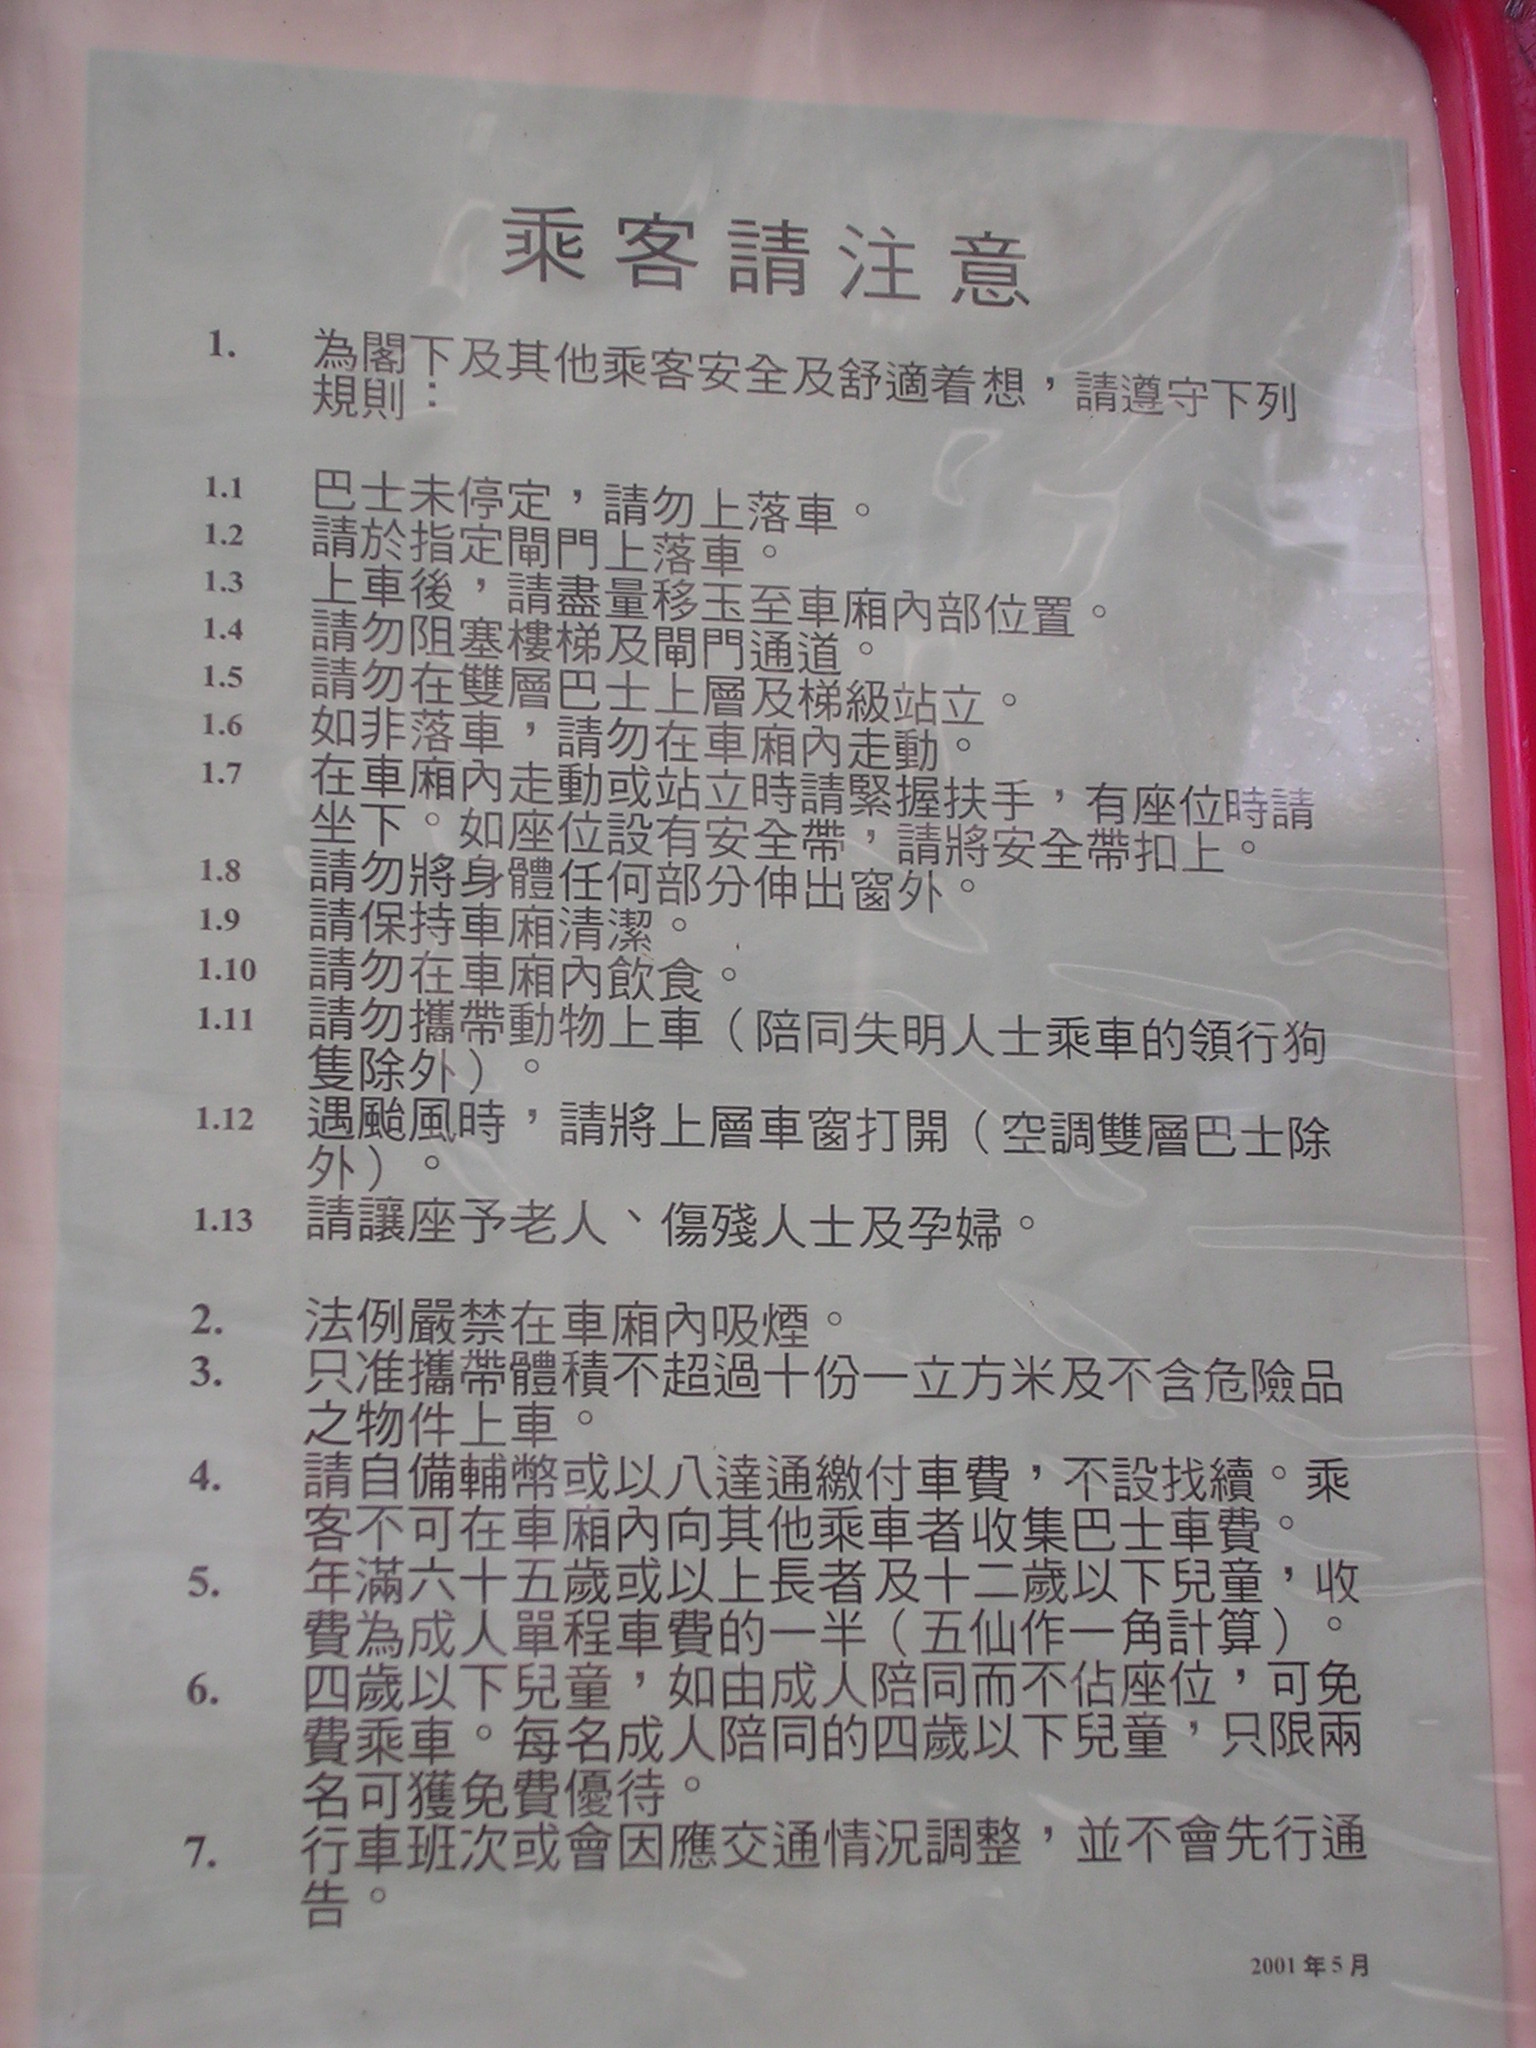 乘客請注意
1. 為閣下及其他乘客安全及舒適着想，請遵守下列
規則：
1.1 巴士未停定，請勿上落車。
1.2 請於指定閘門上落車。
1.3 上車後，請盡量移玉至車廂內部位置。
1.4 請勿阻塞樓梯及閘門通道。
1.5 請勿在雙層巴士上層及梯級站立。
1.6 如非落車，請勿在車廂內走動。
1.7 在車廂內走動或站立時請緊握扶手，有座位時請
坐下。如座位設有安全帶，請將安全帶扣上。
1.8 請勿將身體任何部分伸出窗外。
1.9 請保持車廂清潔。
1.10 請勿在車廂內飲食。
1.11 請勿攜帶動物上車（陪同失明人士乘車的領行狗
隻除外）。
1.12 遇颱風時，請將上層車窗打開（空調雙層巴士除
外）。
1.13 請讓座予老人、傷殘人士及孕婦。
2. 法例嚴禁在車廂內吸煙。
3. 只准攜帶體積不超過十份一立方米及不含危險品
之物件上車。
4. 請自備輔幣或以八達通繳付車費，不設找續。乘
客不可在車廂內向其他乘車者收集巴士車費。
5. 年滿六十五歲或以上長者及十二歲以下兒童，收
費為成人單程車費的一半（五仙作一角計算）。
6. 四歲以下兒童，如由成人陪同而不佔座位，可免
費乘車。每名成人陪同的四歲以下兒童，只限兩
名可獲免費優待。
7. 行車班次或會因應交通情況調整，並不會先行通
告。
2001年5月